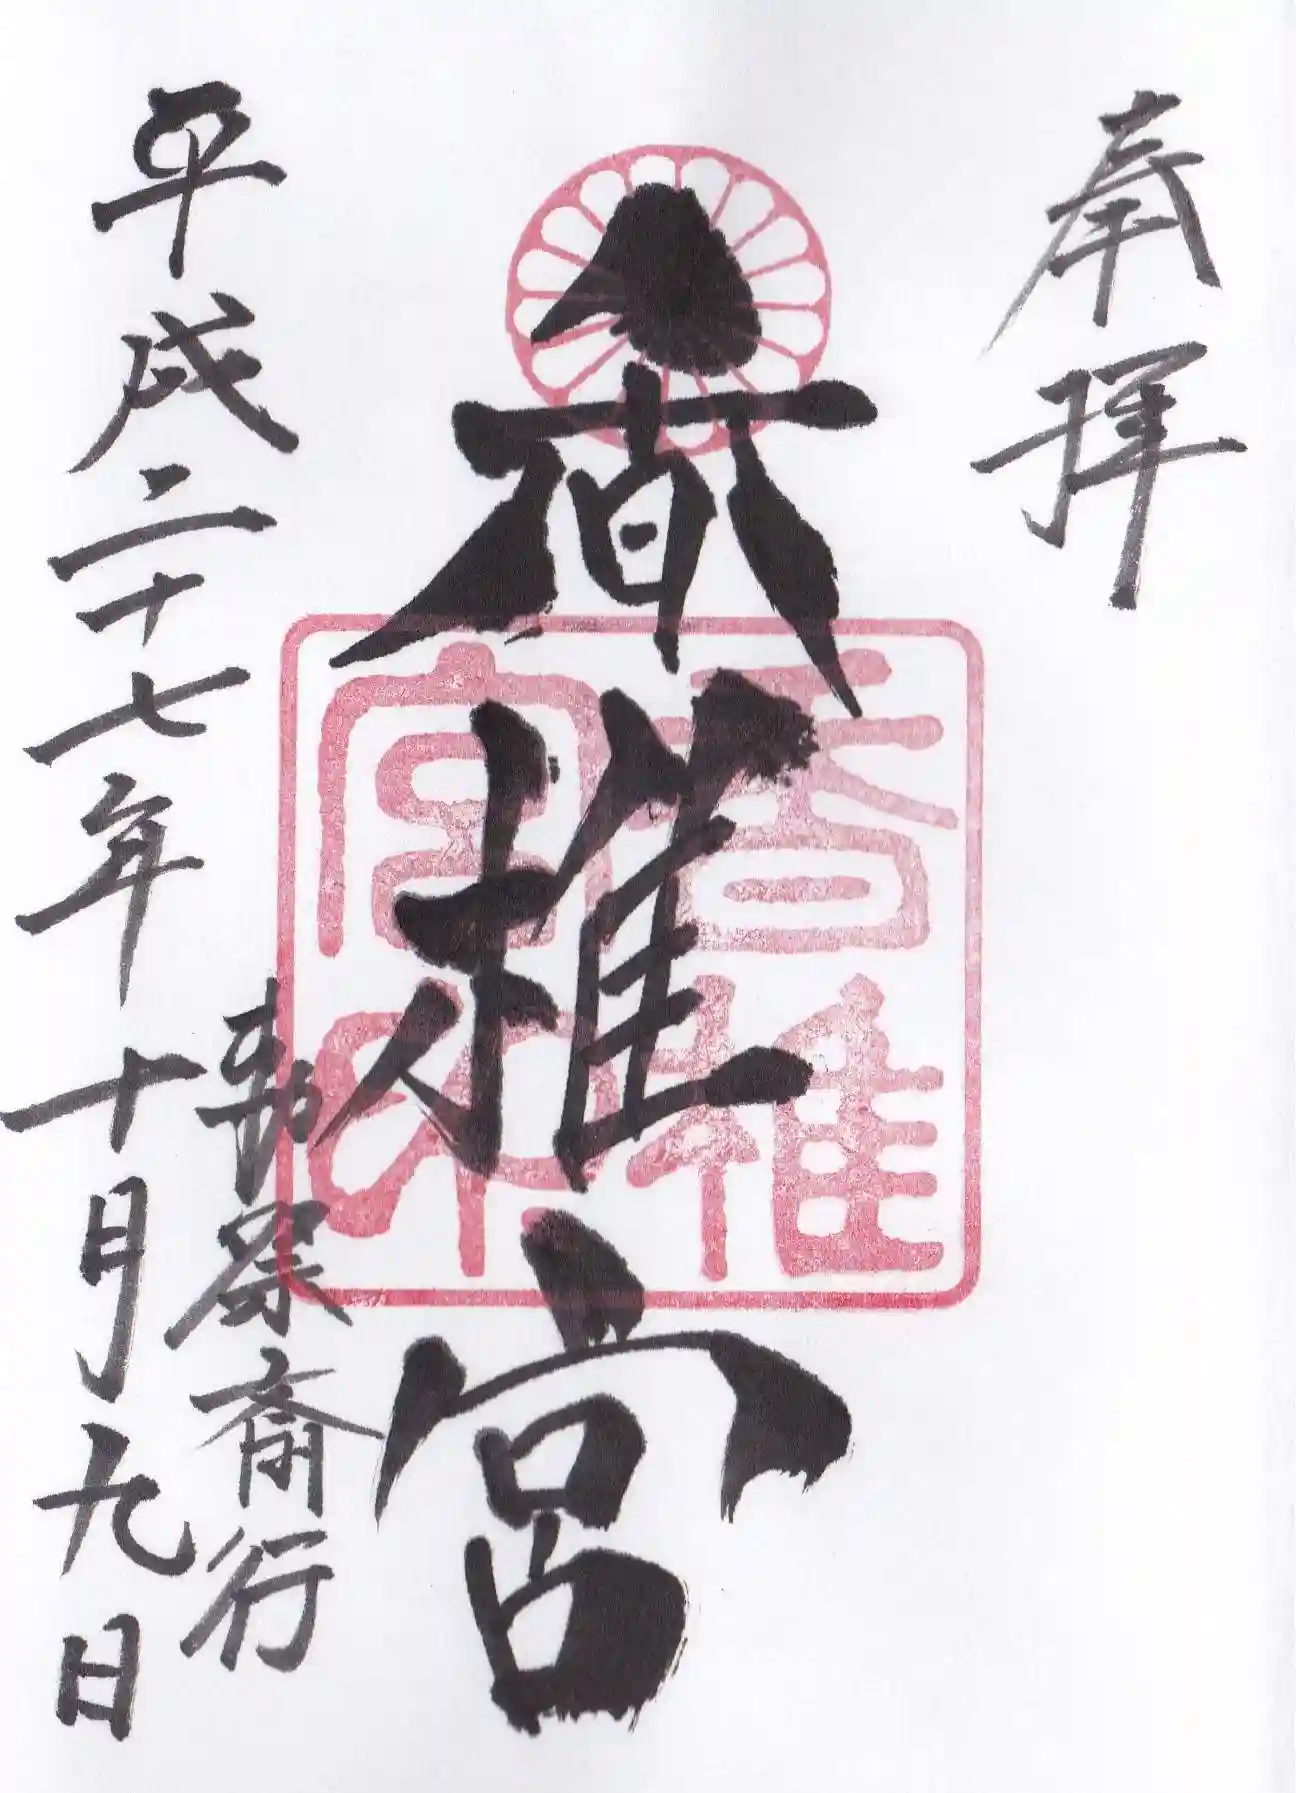 奉拝
香椎宮
香椎宮印
勅祭斎行
平成二十七年十月九日